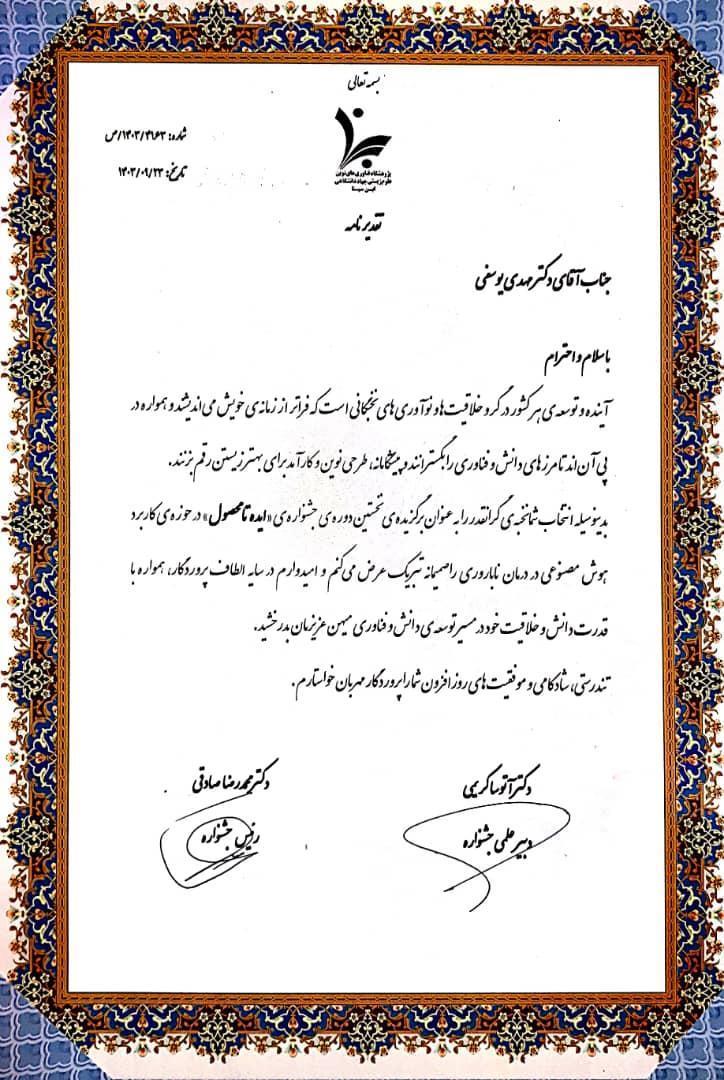 بسمه تعالی
شماره: ۱۴۰۳/۴۱۶۳/ص
تاریخ: ۱۴۰۳/۰۹/۲۳
پژوهشگاه فناوری‌های نوین
علوم زیستی جهاد دانشگاهی
ابن سینا
تقدیرنامه
جناب آقای دکتر مهدی یوسفی
با سلام و احترام
آینده و توسعه‌ی هر کشور در گرو خلاقیت‌ها و نوآوری‌های نخبگانی است که فراتر از زمانه‌ی خویش می‌اندیشند و همواره در
پی آن‌اند تا مرزهای دانش و فناوری را بگسترانند و پیشگامانه، طرحی نوین و کارآمد برای بهتر زیستن رقم بزنند.
بدینوسیله انتخاب شما نخبه‌ی گرانقدر را به عنوان برگزیده‌ی نخستین دوره‌ی جشنواره‌ی «ایده تا محصول» در حوزه‌ی کاربرد
هوش مصنوعی در درمان ناباروری را صمیمانه تبریک عرض می‌کنم و امیدوارم در سایه الطاف پروردگار، همواره با
قدرت دانش و خلاقیت خود در مسیر توسعه‌ی دانش و فناوری میهن عزیزمان بدرخشید.
تندرستی، شادکامی و موفقیت‌های روزافزون شما را از پروردگار مهربان خواستارم.
دکتر آتوسا کریمی
دبیر علمی جشنواره
دکتر محمدرضا صادقی
رئیس جشنواره